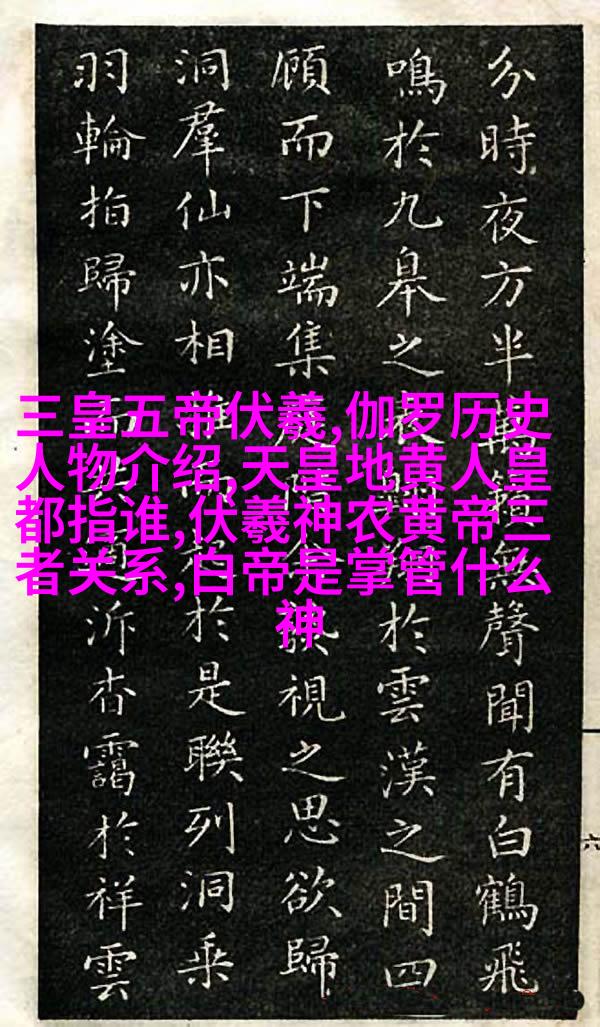 三皇五帝伏羲,伽罗历史
人物介绍,天皇地黄人皇
都指谁,伏羲神农黄帝三
者关系,白帝是掌管什么
神
分時夜方半萬籟無聲聞有白鶴飛
鳴於九皋之表於雲漢之間四
顧而下端集視之思欲歸
洞羣仙亦相於是聯列洞乘
羽輪指歸塗而泝杳靄於祥雲
六